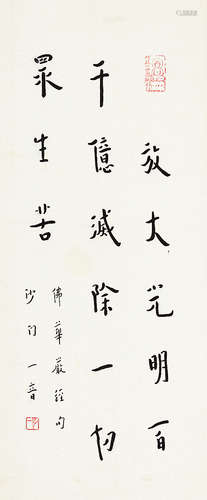 放大光明百
千億滅除一切
眾生苦
佛華嚴經句
沙門一音